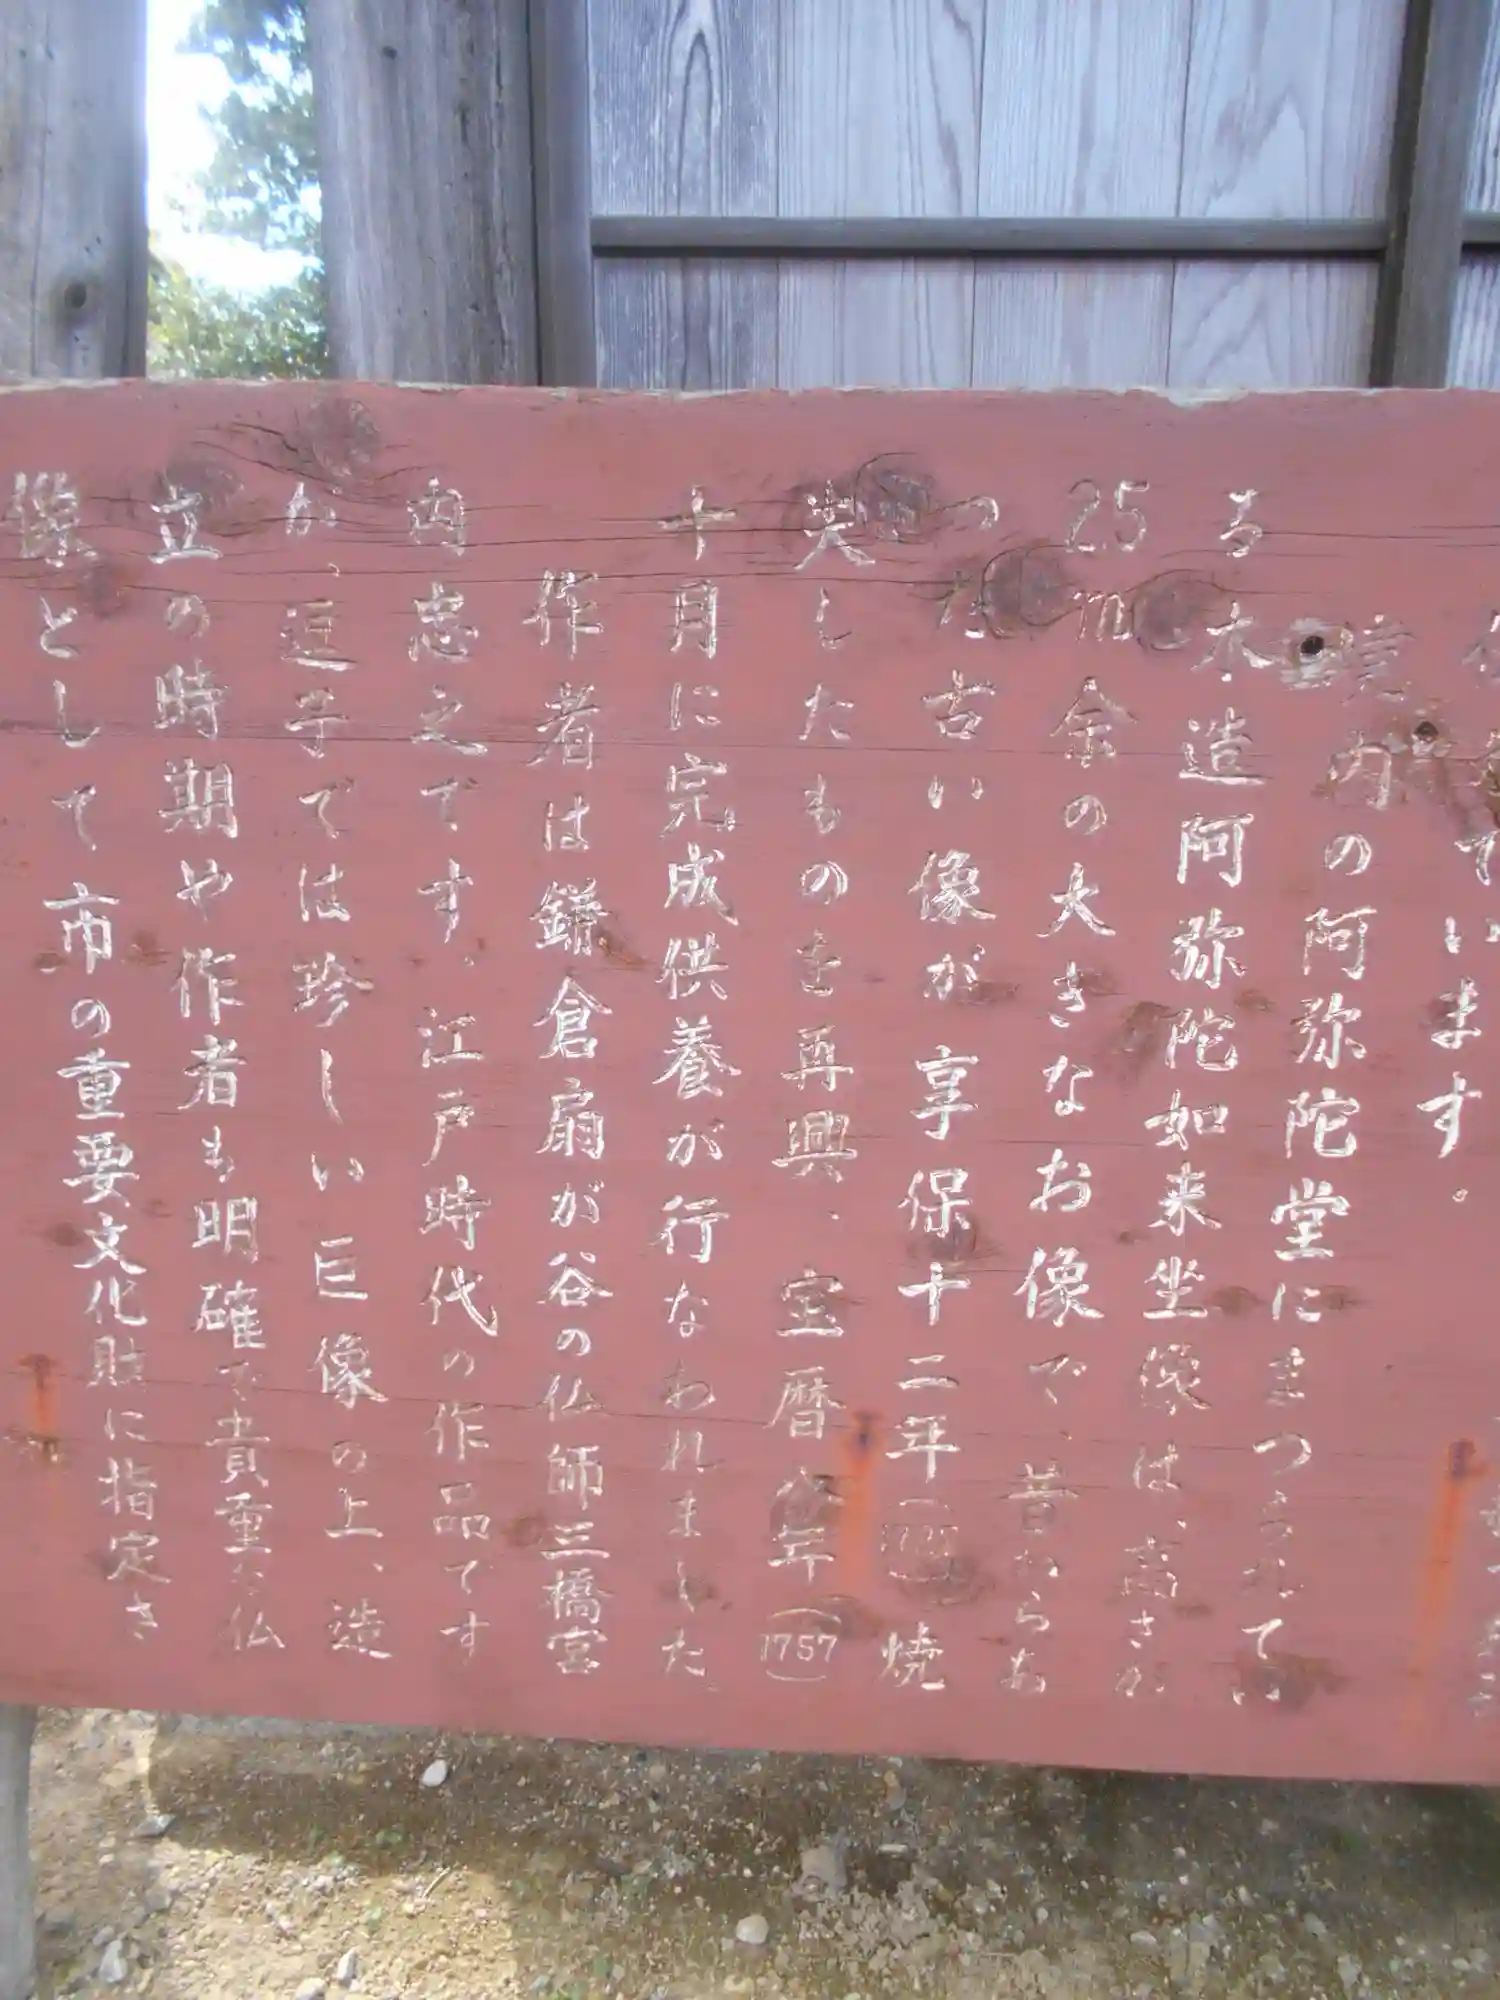 ています。
境内の阿弥陀堂にまつられてい
る木造阿弥陀如来坐像は、高さが
25m余の大きなお像で、昔からあ
った古い像が享保十二年（1727）焼
失したものを再興、宝暦 年（1757）
十月に完成供養が行なわれました。
作者は鎌倉扇が谷の仏師三橋宮
内忠之です。江戸時代の作品です
が、逗子では珍しい巨像の上、造
立の時期や作者も明確で貴重な仏
像として市の重要文化財に指定さ